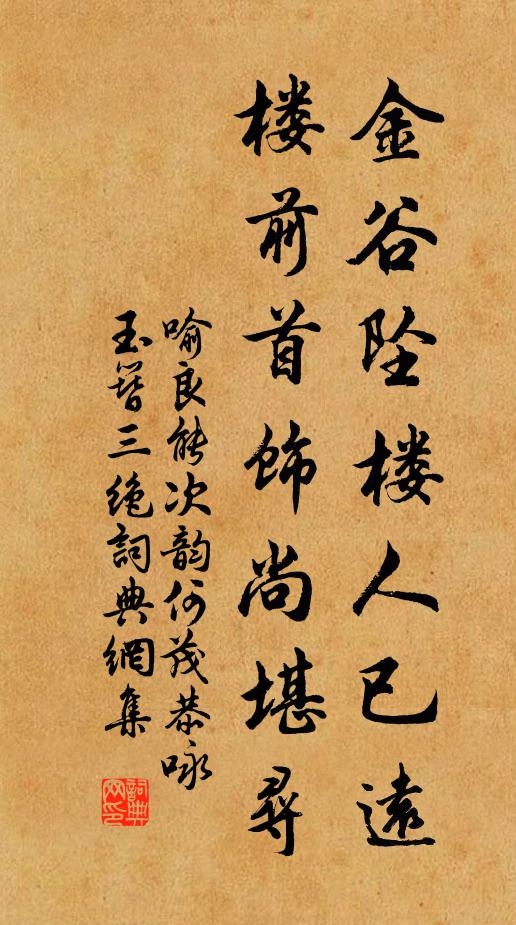 金谷坠楼人已遠
楼前首饰尚堪尋
喻良能次韵何茂恭咏
玉簪三绝詞典網集
詞典网印